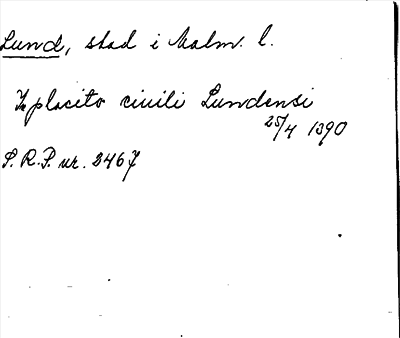 Lund, stad i Malm. l.
In placito ciuili Lundensi
25/4 1390
S. R. P. nr. 2467